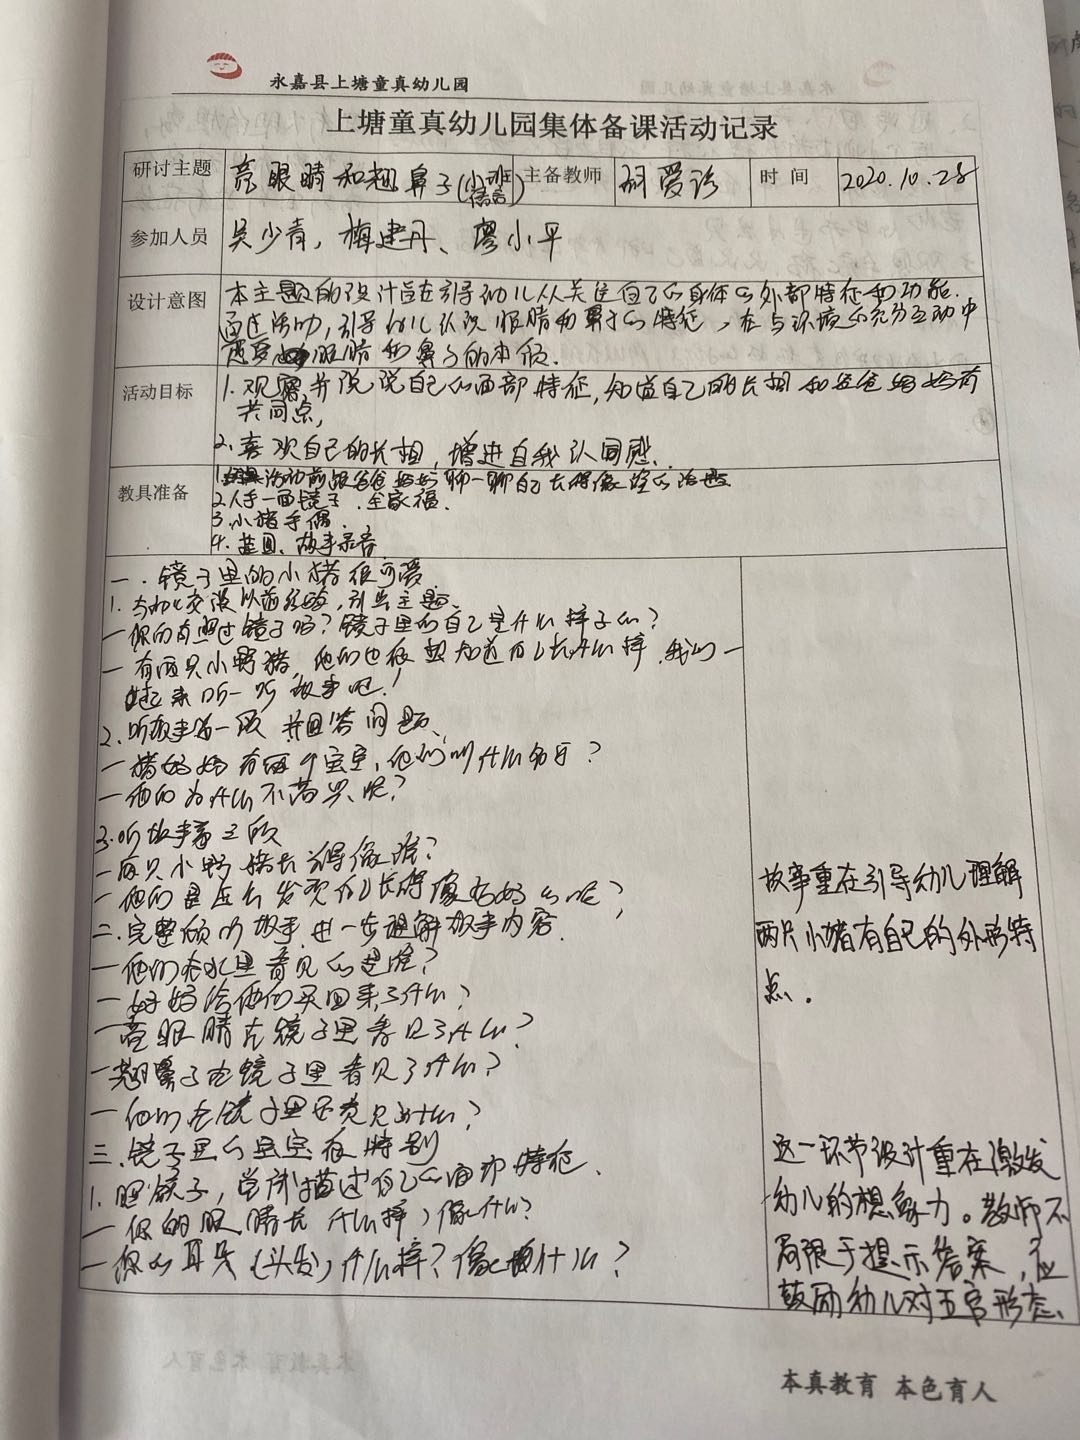 永嘉县上塘童真幼儿园
上塘童真幼儿园集体备课活动记录
研讨主题 亮眼睛和翘鼻子(小班语言) 主备教师 胡爱 时间 2020.10.28
参加人员 吴少青,梅建丹、廖小平
设计意图 本主题的设计旨在引导幼儿从关注自己的身体的外部特征和功能.
通过活动,引导幼儿认识眼睛和鼻子的特征,在与环境的充分互动中
眼睛和鼻子的本领.
活动目标 1.观察并说说自己的面部特征,知道自己的长相和爸爸妈妈有
共同点,
2.喜欢自己的长相,增进自我认同感.
教具准备 1.活动前跟爸爸妈妈聊一聊自己长得像谁的话题
2.人手一面镜子.全家福.
3.小猪手偶.
4.挂图、故事录音
一.镜子里的小猪很可爱
1.与幼儿交谈以前经验,引出主题.
一你们有照过镜子吗?镜子里的自己是什么样子的?
一有两只小野猪,他们也很想知道自己长什么样.我们一
起来听一听故事吧!
2.听故事第一段 并回答问题、
一猪妈妈有两个宝宝,他们叫什么名字?
一他们为什么不高兴呢?
3.听故事第二段
一两只小野猪长得像谁?
一他们是怎么发现自己长得像妈妈的呢?
二.完整倾听故事,进一步理解故事内容.
一他们在水里看见的是谁?
一妈妈给他们买回来了什么?
一亮眼睛在镜子里看见了什么?
一翘鼻子在镜子里看见了什么?
一他们在镜子里还看见了什么?
三.镜子里的宝宝很特别
1.照镜子,尝试描述自己的面部特征.
一你的眼睛长什么样,像什么?
一你的耳朵(头发)什么样?像什么?
故事重在引导幼儿理解
两片小猪有自己的外形特
点.
这一环节设计重在激发
幼儿的想象力。教师不
局限于提示答案,应
鼓励幼儿对五官形态、
本真教育 本色育人